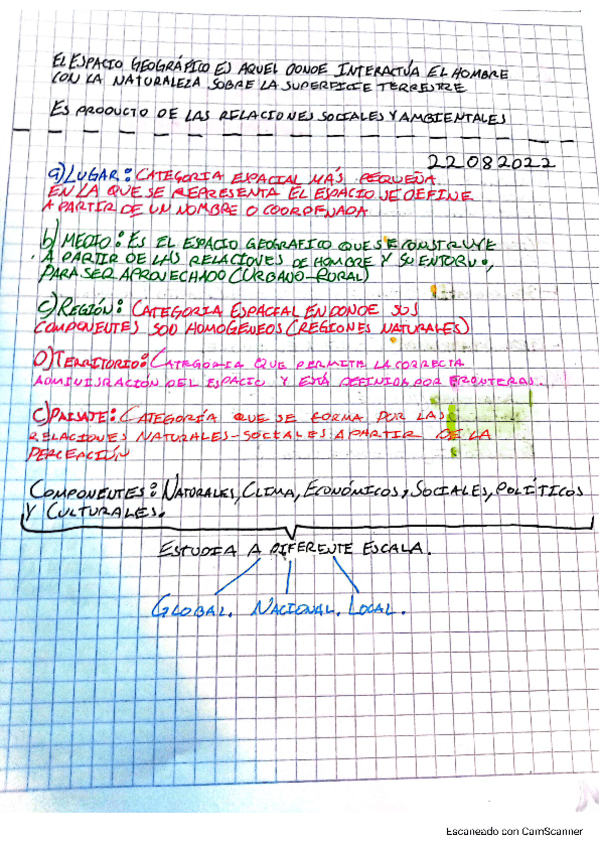 EL ESPACIO GEOGRÁFICO ES AQUEL DONDE INTERACTÚA EL HOMBRE
CON LA NATURALEZA SOBRE LA SUPERFICIE TERRESTRE
ES PRODUCTO DE LAS RELACIONES SOCIALES Y AMBIENTALES
22082022
a) LUGAR: CATEGORIA ESPACIAL MÁS PEQUEÑA
EN LA QUE SE REPRESENTA EL ESPACIO SE DEFINE
A PARTIR DE UN NOMBRE O COORDENADA
b) MEDIO: ES EL ESPACIO GEOGRAFICO QUE SE CONSTRUYE
A PARTIR DE LAS RELACIONES DE HOMBRE Y SU ENTORNO,
PARA SER APROVECHADO (URBANO-RURAL)
C) REGIÓN: CATEGORIA ESPACIAL EN DONDE SUS
COMPONENTES SON HOMOGÉNEOS (REGIONES NATURALES)
D) TERRITORIO: CATEGORIA QUE PERMITE LA CORRECTA
ADMINISRACIÓN DEL ESPACIO Y ESTÁ DEFINIDA POR FRONTERAS.
C) PAISAJE: CATEGORÍA QUE SE FORMA POR LAS
RELACIONES NATURALES-SOCIALES A PARTIR DE LA
PERCEACIÓN
COMPONENTES: NATURALES, CLIMA, ECONÓMICOS, SOCIALES, POLÍTICOS
Y CULTURALES.
ESTUDIA A DIFERENTE ESCALA.
GLOBAL. NACIONAL. LOCAL.
Escaneado con CamScanner